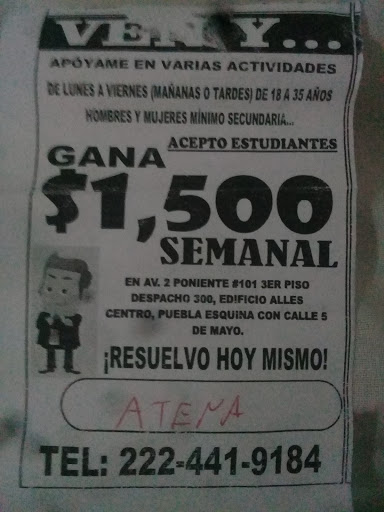 VEN Y...
APÓYAME EN VARIAS ACTIVIDADES
DE LUNES A VIERNES (MAÑANAS O TARDES) DE 18 A 35 AÑOS
HOMBRES Y MUJERES MÍNIMO SECUNDARIA...
ACEPTO ESTUDIANTES
GANA
$1,500
SEMANAL
EN AV. 2 PONIENTE #101 3ER PISO
DESPACHO 300, EDIFICIO ALLES
CENTRO, PUEBLA ESQUINA CON CALLE 5
DE MAYO.
¡RESUELVO HOY MISMO!
ATENA
TEL: 222-441-9184